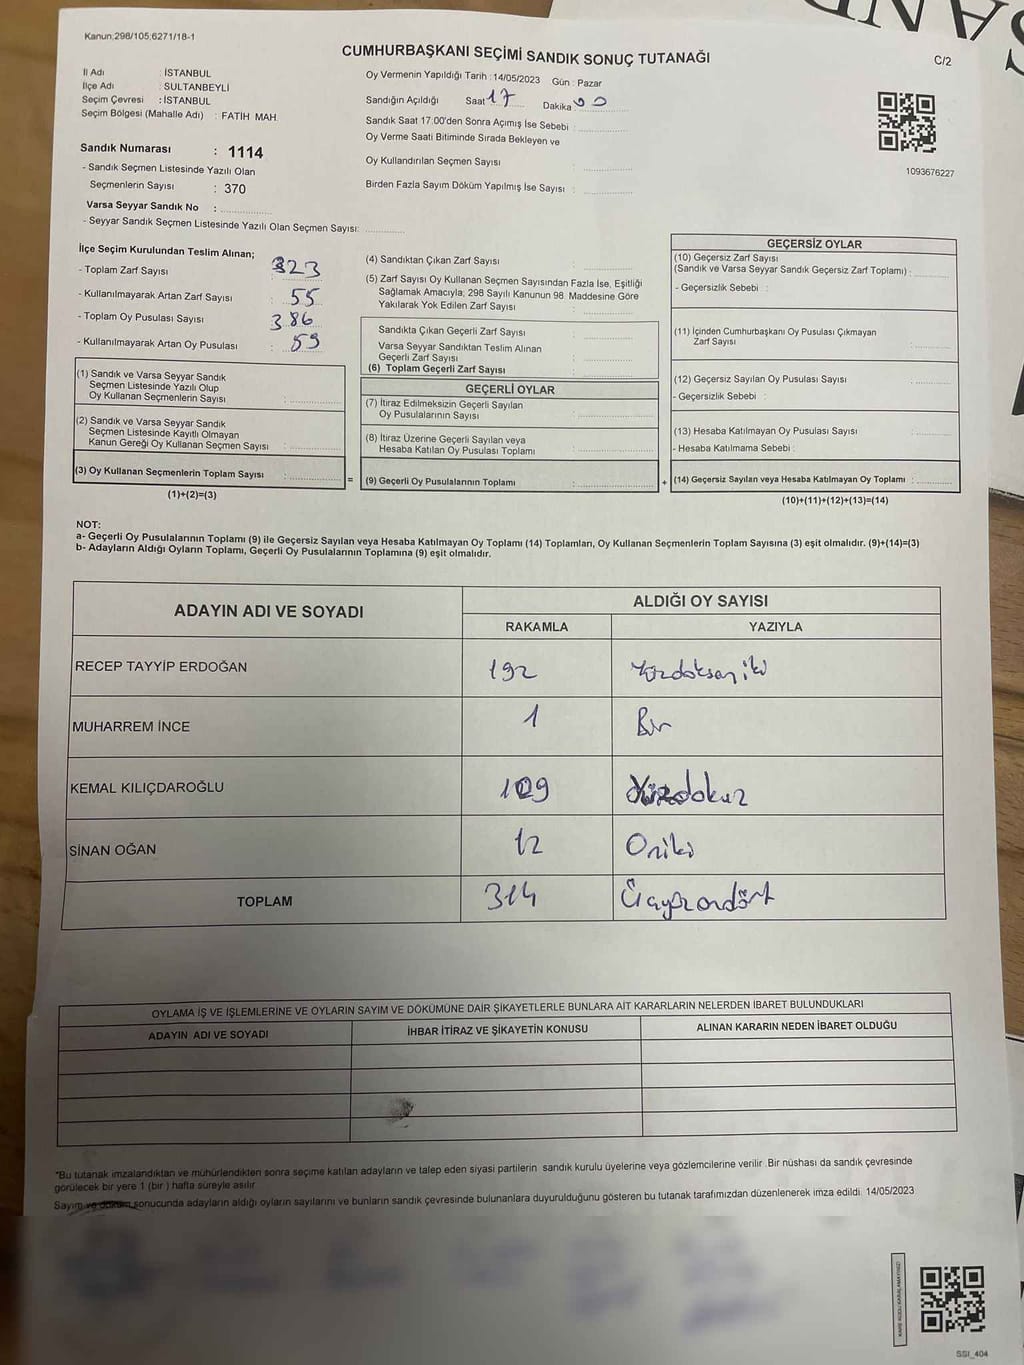 SAND
Kanun:298/105;6271/18-1
CUMHURBAŞKANI SEÇİMİ SANDIK SONUÇ TUTANAĞI
C/2
İl Adı : İSTANBUL
İlçe Adı : SULTANBEYLİ
Seçim Çevresi : İSTANBUL
Seçim Bölgesi (Mahalle Adı) : FATİH MAH.
Oy Vermenin Yapıldığı Tarih : 14/05/2023 Gün : Pazar
Sandığın Açıldığı Saat 17 Dakika 00
Sandık Saat 17:00'den Sonra Açımış İse Sebebi :
Oy Verme Saati Bitiminde Sırada Bekleyen ve
Oy Kullandırılan Seçmen Sayısı :
Birden Fazla Sayım Döküm Yapılmış İse Sayısı :
1093676227
Sandık Numarası : 1114
- Sandık Seçmen Listesinde Yazılı Olan
Seçmenlerin Sayısı : 370
Varsa Seyyar Sandık No :
- Seyyar Sandık Seçmen Listesinde Yazılı Olan Seçmen Sayısı:
İlçe Seçim Kurulundan Teslim Alınan;
- Toplam Zarf Sayısı : 323
- Kullanılmayarak Artan Zarf Sayısı : 55
- Toplam Oy Pusulası Sayısı : 386
- Kullanılmayarak Artan Oy Pusulası : 59
(1) Sandık ve Varsa Seyyar Sandık
Seçmen Listesinde Yazılı Olup
Oy Kullanan Seçmenlerin Sayısı :
(2) Sandık ve Varsa Seyyar Sandık
Seçmen Listesinde Kayıtlı Olmayan
Kanun Gereği Oy Kullanan Seçmen Sayısı :
(3) Oy Kullanan Seçmenlerin Toplam Sayısı :
(1)+(2)=(3)
=
(4) Sandıktan Çıkan Zarf Sayısı :
(5) Zarf Sayısı Oy Kullanan Seçmen Sayısından Fazla İse, Eşitliği
Sağlamak Amacıyla, 298 Sayılı Kanunun 98. Maddesine Göre
Yakılarak Yok Edilen Zarf Sayısı :
Sandıkta Çıkan Geçerli Zarf Sayısı :
Varsa Seyyar Sandıktan Teslim Alınan
Geçerli Zarf Sayısı :
(6) Toplam Geçerli Zarf Sayısı :
GEÇERLİ OYLAR
(7) İtiraz Edilmeksizin Geçerli Sayılan
Oy Pusulalarının Sayısı :
(8) İtiraz Üzerine Geçerli Sayılan veya
Hesaba Katılan Oy Pusulası Toplamı :
(9) Geçerli Oy Pusulalarının Toplamı :
+
GEÇERSİZ OYLAR
(10) Geçersiz Zarf Sayısı
(Sandık ve Varsa Seyyar Sandık Geçersiz Zarf Toplamı) :
- Geçersizlik Sebebi :
(11) İçinden Cumhurbaşkanı Oy Pusulası Çıkmayan
Zarf Sayısı :
(12) Geçersiz Sayılan Oy Pusulası Sayısı :
- Geçersizlik Sebebi :
(13) Hesaba Katılmayan Oy Pusulası Sayısı :
- Hesaba Katılmama Sebebi :
(14) Geçersiz Sayılan veya Hesaba Katılmayan Oy Toplamı :
(10)+(11)+(12)+(13)=(14)
NOT:
a- Geçerli Oy Pusulalarının Toplamı (9) ile Geçersiz Sayılan veya Hesaba Katılmayan Oy Toplamı (14) Toplamları, Oy Kullanan Seçmenlerin Toplam Sayısına (3) eşit olmalıdır. (9)+(14)=(3)
b- Adayların Aldığı Oyların Toplamı, Geçerli Oy Pusulalarının Toplamına (9) eşit olmalıdır.
ADAYIN ADI VE SOYADI
ALDIĞI OY SAYISI
RAKAMLA YAZIYLA
RECEP TAYYİP ERDOĞAN 192 Yüzdoksaniki
MUHARREM İNCE 1 Bir
KEMAL KILIÇDAROĞLU 109 Yüzdokuz
SİNAN OĞAN 12 Oniki
TOPLAM 314 Üçyüzondört
OYLAMA İŞ VE İŞLEMLERİNE VE OYLARIN SAYIM VE DÖKÜMÜNE DAİR ŞİKAYETLERLE BUNLARA AİT KARARLARIN NELERDEN İBARET BULUNDUKLARI
ADAYIN ADI VE SOYADI İHBAR İTİRAZ VE ŞİKAYETİN KONUSU ALINAN KARARIN NEDEN İBARET OLDUĞU
*Bu tutanak imzalandıktan ve mühürlendikten sonra seçime katılan adayların ve talep eden siyasi partilerin sandık kurulu üyelerine veya gözlemcilerine verilir .Bir nüshası da sandık çevresinde
görülecek bir yere 1 (bir ) hafta süreyle asılır.
Sayım ve döküm sonucunda adayların aldığı oyların sayılarını ve bunların sandık çevresinde bulunanlara duyurulduğunu gösteren bu tutanak tarafımızdan düzenlenerek imza edildi. 14/05/2023
SSI_404